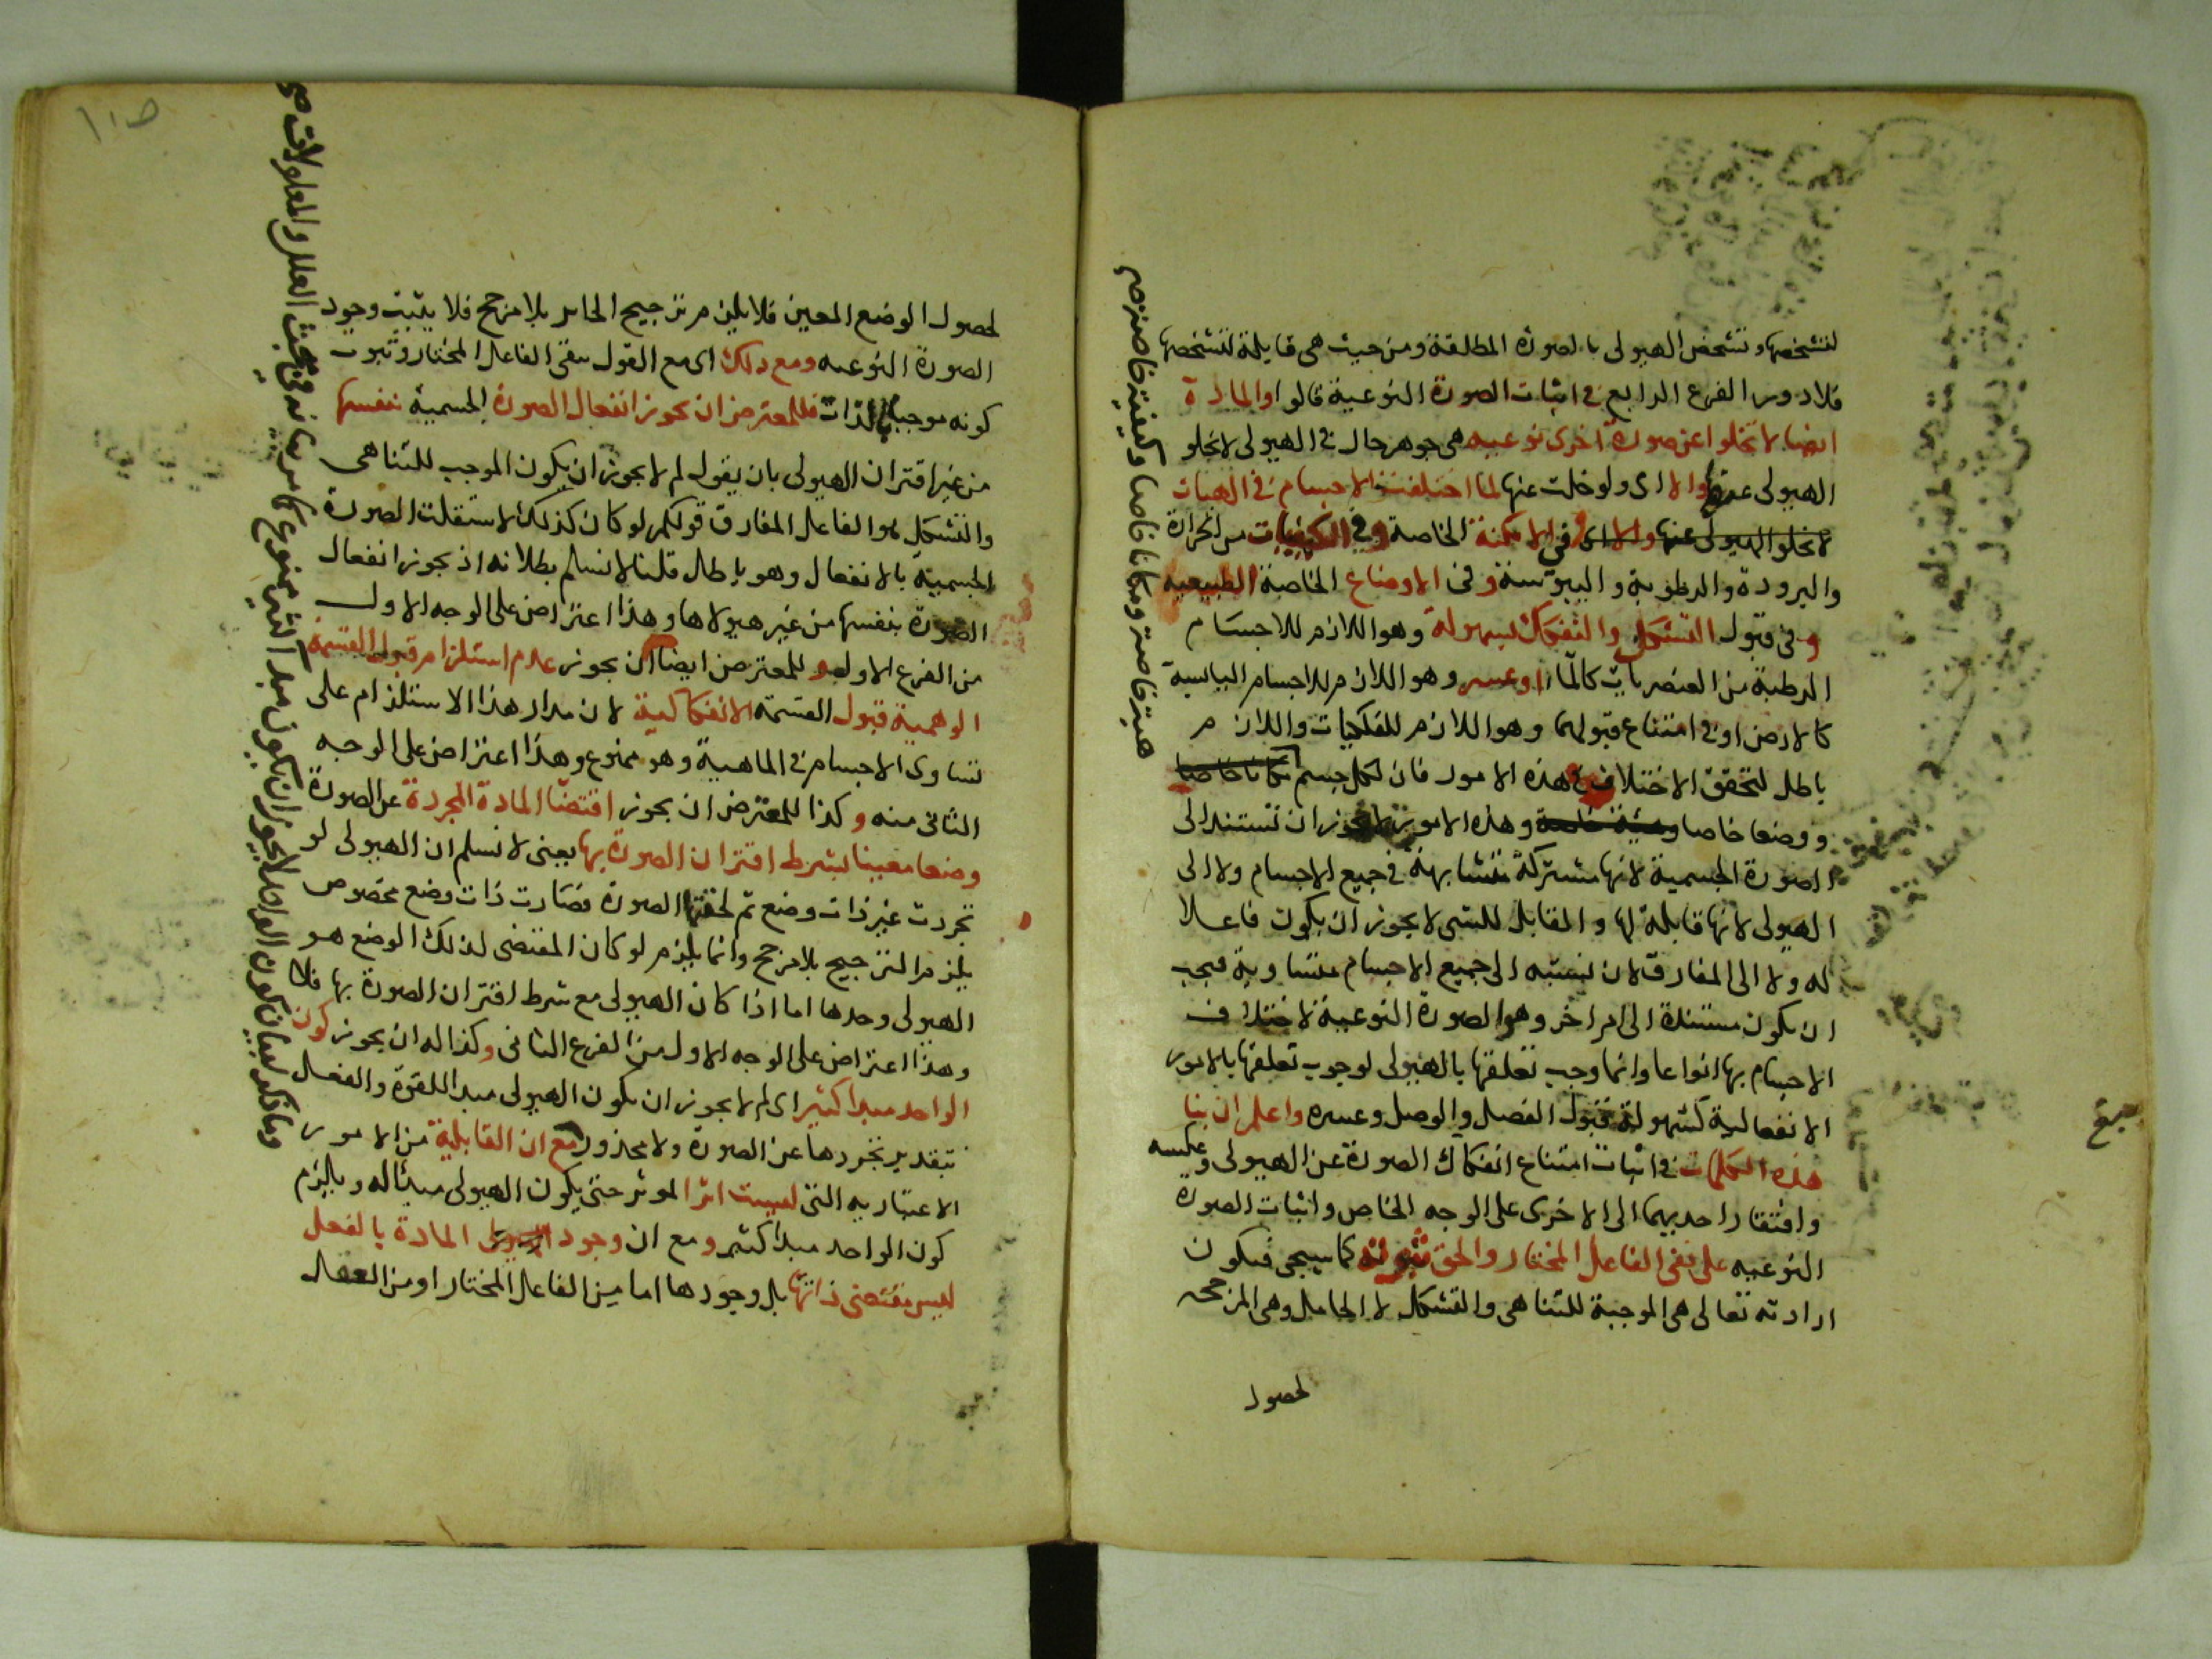 لتشخصها وتشخص الهيولى بالصورة المطلقة ومن حيث هى قابلة لتشخصها
فلا دور الفرع الرابع فى اثبات الصورة النوعية قالوا والمادة
ايضا لا تخلوا عن صورة اخرى نوعيه هى جوهر حال فى الهيولى لا تخلو
الهيولى عنها والا اى ولو خلت عنها لما اختلفت الاجسام فى الهيات
لا تخلو الهيولى عنها والا اى وفى الامكنة الخاصة وفى الكيفيات من الحرارة
والبرودة والرطوبة واليبوسة وفى الاوضاع الخاصة الطبيعيه
وفى قبول التشكل والتفكك بسهولة وهو اللازم للاجسام
الرطبة من العنصريات كالماء او عسر وهو اللازم للاجسام اليابسة
كالارض او فى امتناع قبولهما وهو اللازم للفلكيات واللازم
باطل لتحقق الاختلاف فى هذه الامور فان لكل جسم مكانا خاصا
ووضعا خاصا وهيئة خاصة وهذه الامور لا يجوز ان تستند الى
الصورة الجسمية لانها مشتركة متشابهة فى جميع الاجسام ولا الى
الهيولى لانها قابلة لها والقابل للشى لا يجوز ان يكون فاعلا
له ولا الى المفارق لان نسبته الى جميع الاجسام متساوية فيجب
ان يكون مستندة الى امر اخر وهو الصورة النوعية لاختلاف
الاجسام بها انواعا وانما وجب تعلقها بالهيولى لوجوب تعلقها بالامور
الانفعالية كسهولة قبول الفصل والوصل وعسره واعلم ان بنا
هذه الكلمات فى اثبات امتناع انفكاك الصورة عن الهيولى وعكسه
وافتقار احديهما الى الاخرى على الوجه الخاص واثبات الصورة
النوعيه على نفى الفاعل المختار والحق ثبوته كما سيجى فيكون
ارادته تعالى هى الموجبة للتناهى والتشكل لا الحامل وهى المرجحه
لحصول
هيئة خاصة ومكانا خاصا وكيفية خاصة صح
لحصول الوضع المعين فلا يلزم ترجيح الجايز بلا مرجح فلا يثبت وجود
الصورة النوعيه ومع ذلك اى مع القول بنفى الفاعل المختار وثبوت
كونه موجبا بالذات فللمعترض ان يجوز انفعال الصورة الجسمية بنفسها
من غير اقتران الهيولى بان يقول لم لا يجوز ان يكون الموجب للتناهى
والتشكل هو الفاعل المفارق قولكم لو كان كذلك لاستقلت الصورة
الجسمية بالانفعال وهو باطل قلنا لا نسلم بطلانه اذ يجوز انفعال
الصورة بنفسها من غير هيولاها وهذا اعتراض على الوجه الاول
من الفرع الاول وللمعترض ايضا ان يجوز عدم استلزام قبول القسمة
الوهمية قبول القسمة الانفكاكية لان مدار هذا الاستلزام على
تساوى الاجسام فى الماهية وهو ممنوع وهذا اعتراض على الوجه
الثانى منه وكذا للمعترض ان يجوز اقتضا المادة المجردة عن الصورة
وضعا معينا بشرط اقتران الصورة بها يعنى لا نسلم ان الهيولى لو
تجردت غير ذات وضع ثم لحقتها الصورة فصارت ذات وضع مخصوص
يلزم الترجيح بلا مرجح وانما يلزم لو كان المقتضى لذلك الوضع هو
الهيولى وحدها اما اذا كان الهيولى مع شرط اقتران الصورة بها فلا
وهذا اعتراض على الوجه الاول من الفرع الثانى وكذا له ان يجوز كون
الواحد مبدا كثير اى لم لا يجوز ان يكون الهيولى مبدا للقوة والفعل
بتقدير تجردها عن الصورة ولا محذور مع ان القابلية من الامور
الاعتباريه التى ليست اثر الموثر حتى يكون الهيولى مبدا له ويلزم
كون الواحد مبدا كثير ومع ان وجود المادة بالفعل
ليس مقتضى ذاتها بل وجودها اما من الفاعل المختار او من العقل